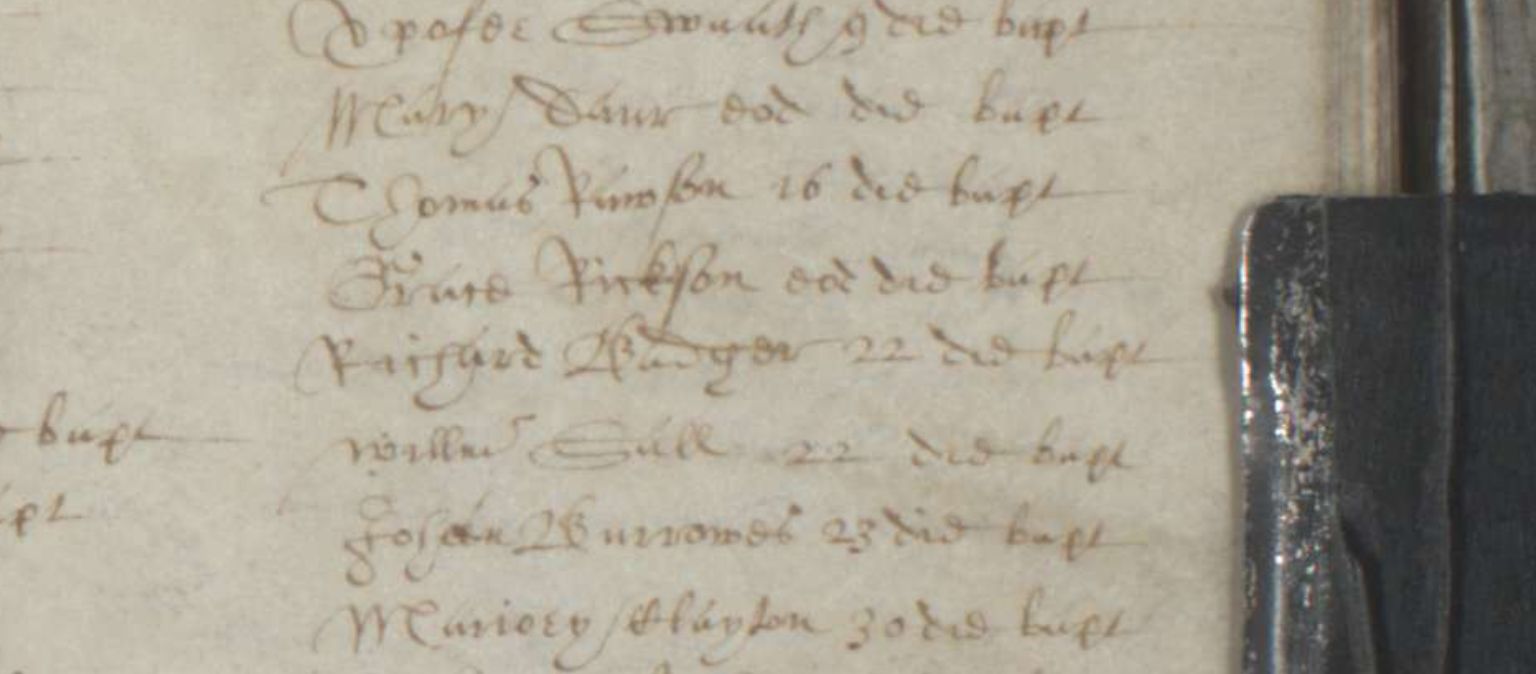 Swanth 9 die bapt
Mary Daur eod die bapt
Thomas Rawson 16 die bapt
Grace Rickson eod die bapt
Richard Badger 22 die bapt
bapt Willm Sall 22 die bapt
Johan Burrowes 23 die bapt
Mariory Clayton 30 die bapt